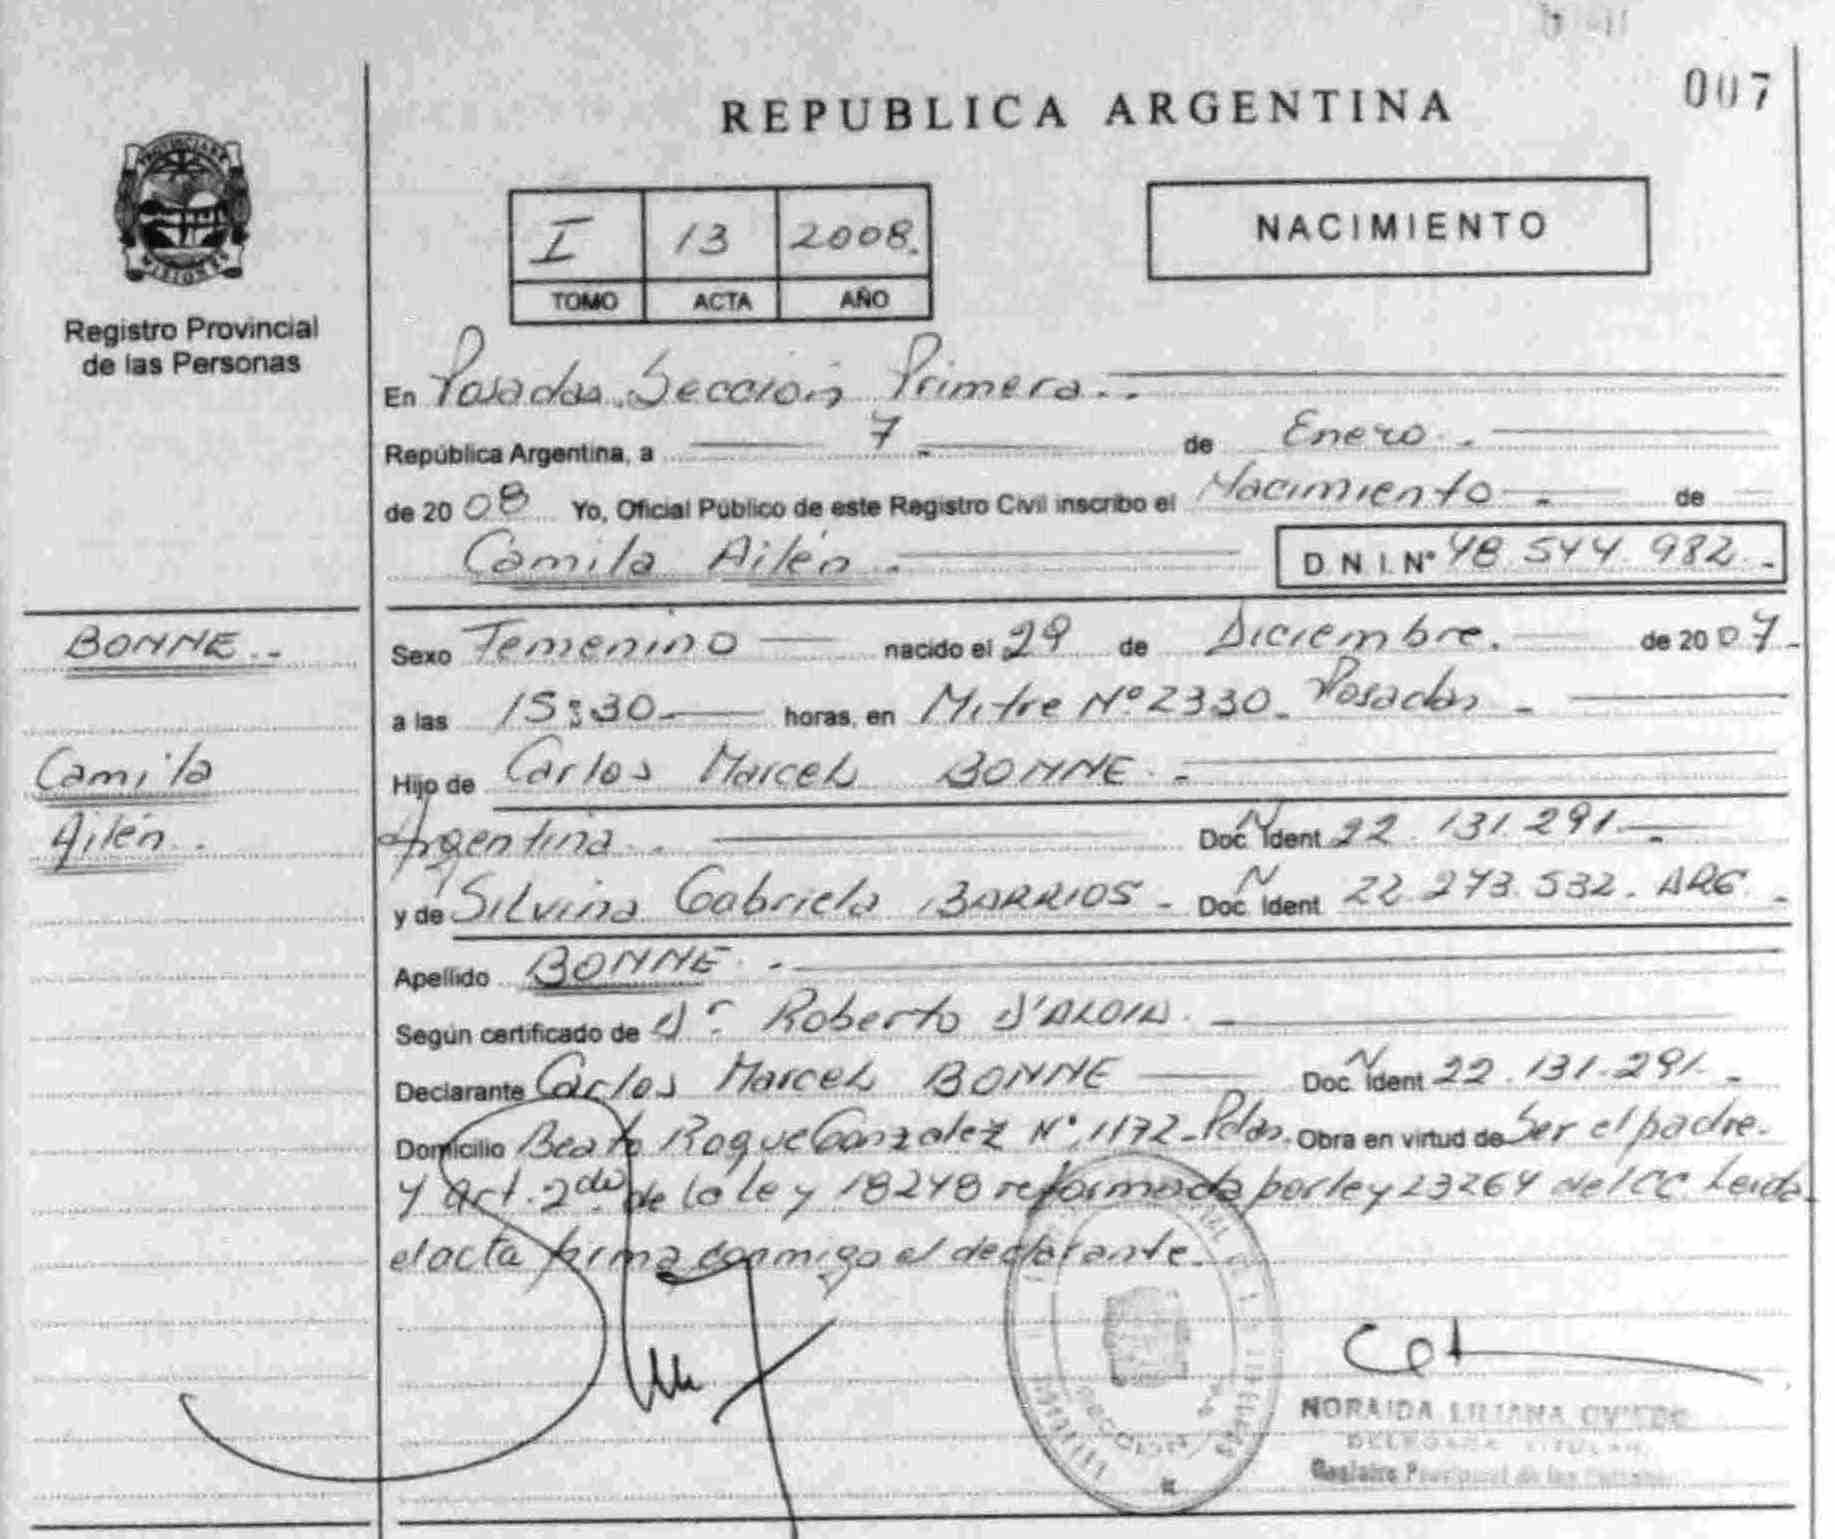 007
REPUBLICA ARGENTINA
PROVINCIA DE
MISIONES
Registro Provincial
de las Personas
I 13 2008.
TOMO ACTA AÑO
NACIMIENTO
En Posadas Sección Primera..
República Argentina, a 7 de Enero.
de 20 08 Yo, Oficial Público de este Registro Civil inscribo el Nacimiento de
Camila Ailén. D.N.I. Nº 48.544.982.-
BONNE..
Camila
Ailén.
Sexo Femenino nacido el 29 de Diciembre. de 20 07.
a las 15:30 horas, en Mitre Nº 2330. Posadas
Hijo de Carlos Marcel BONNE.
Argentina.. Doc. N Ident 22.131.291.
y de Silvina Gabriela BARRIOS - Doc. N Ident 22.273.532. ARG.
Apellido BONNE.
Según certificado de Dr. Roberto D'ALOIA.
Declarante Carlos Marcel BONNE Doc. N Ident 22.131.291.
Domicilio Beato Roque Gonzalez Nº 1172-Pdas. Obra en virtud de Ser el padre.
y Art. 2do de la ley 18248 reformada por ley 23264 del CC. Leida
el acta firma conmigo el declarante.
NORAIDA LILIANA OVIEDO
DELEGADA TITULAR
Registro Provincial de las Personas